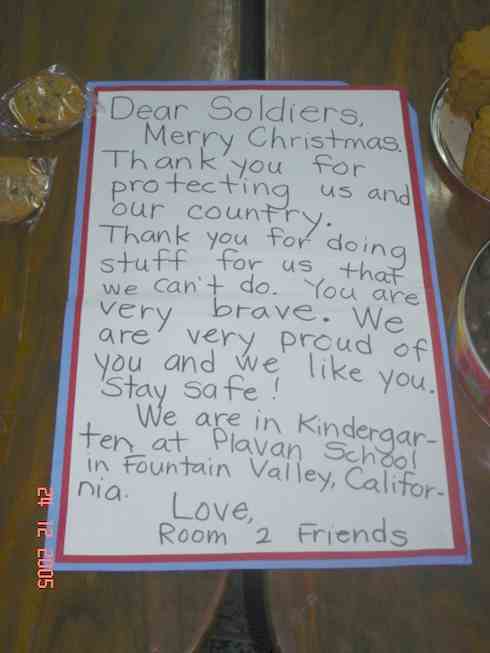 Dear Soldiers,
Merry Christmas.
Thank you for
protecting us and
our country.
Thank you for doing
stuff for us that
we can't do. You are
very brave. We
are very proud of
you and we like you.
Stay safe!
We are in Kindergar-
ten at Plavan School
in Fountain Valley, Califor-
nia.
Love,
Room 2 Friends
24 12 2005